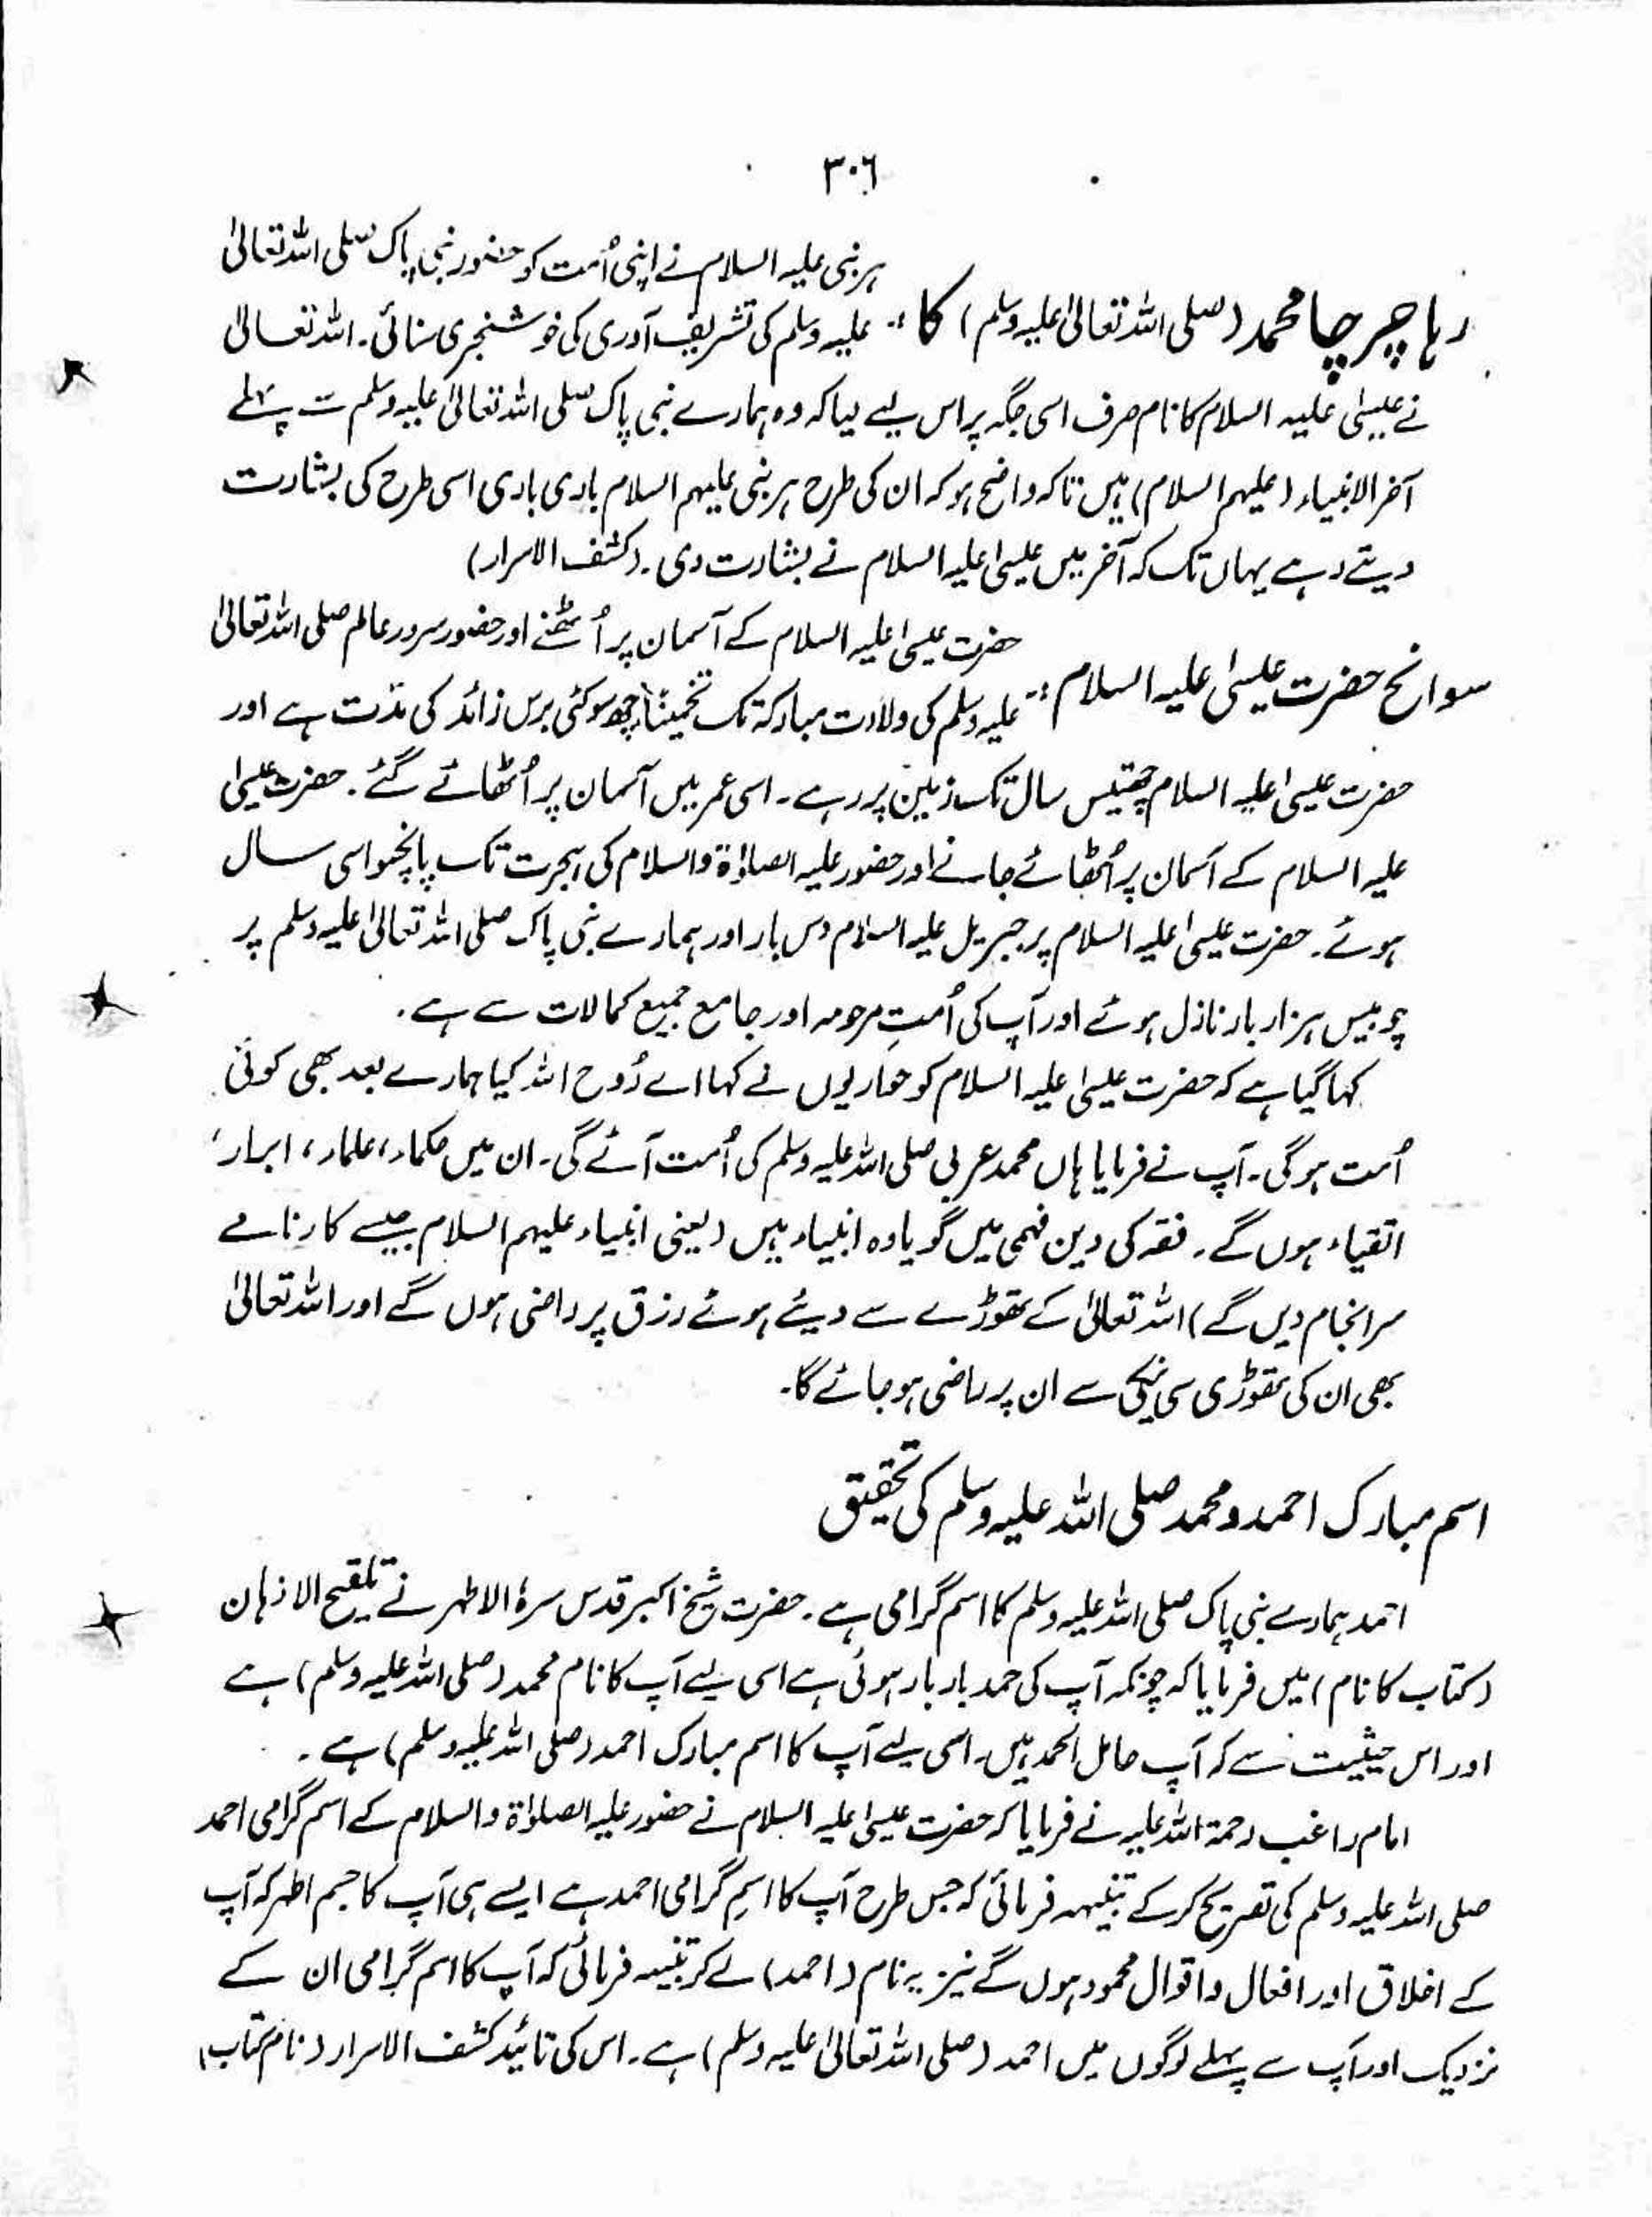 ٣٠٦
ہر نبی علیہ السلام نے اپنی اُمت کو حضور نبی پاک صلی اللہ تعالیٰ
رہا چرچا محمد (صلی اللہ تعالیٰ علیہ وسلم) کا :- علیہ وسلم کی تشریف آوری کی خوشخبری سنائی۔ اللہ تعالیٰ
نے عیسیٰ علیہ السلام کا نام صرف اسی جگہ پر اس لیے لیا کہ وہ ہمارے نبی پاک صلی اللہ تعالیٰ علیہ وسلم سے پہلے
آخر الانبیاء (علیہم السلام) ہیں تاکہ واضح ہو کہ ان کی طرح ہر نبی علیہم السلام باری باری اسی طرح کی بشارت
دیتے رہے یہاں تک کہ آخر میں عیسیٰ علیہ السلام نے بشارت دی۔ (کشف الاسرار)
حضرت عیسیٰ علیہ السلام کے آسمان پر اُٹھنے اور حضور سرور عالم صلی اللہ تعالیٰ
سوانح حضرت عیسیٰ علیہ السلام :- علیہ وسلم کی ولادت مبارکہ تک تخمیناً چھ سو کئی برس زائد کی مدّت ہے اور
حضرت عیسیٰ علیہ السلام چھتیس سال تک زمین پر رہے۔ اسی عمر میں آسمان پر اُٹھائے گئے۔ حضرت عیسیٰ
علیہ السلام کے آسمان پر اُٹھائے جانے اور حضور علیہ الصلوٰۃ والسلام کی ہجرت تک پانچسو اسی سال
ہوئے۔ حضرت عیسیٰ علیہ السلام پر جبریل علیہ السلام دس بار اور ہمارے نبی پاک صلی اللہ تعالیٰ علیہ وسلم پر
چوبیس ہزار بار نازل ہوئے اور آپ کی اُمتِ مرحومہ اور جامع جمیع کمالات سے ہے۔
کہا گیا ہے کہ حضرت عیسیٰ علیہ السلام کو حواریوں نے کہا اے رُوح اللہ کیا ہمارے بعد بھی کوئی
اُمت ہوگی۔ آپ نے فرمایا ہاں محمد عربی صلی اللہ علیہ وسلم کی اُمت آئے گی۔ ان میں حکماء، علماء، ابرار،
اتقیاء ہوں گے۔ فقہ کی دین فہمی میں گویا وہ انبیاء ہیں (یعنی انبیاء علیہم السلام جیسے کارنامے
سرانجام دیں گے) اللہ تعالیٰ کے تھوڑے سے دیئے ہوئے رزق پر راضی ہوں گے اور اللہ تعالیٰ
بھی ان کی تھوڑی سی نیکی سے ان پر راضی ہو جائے گا۔
اسم مبارک احمد و محمد صلی اللہ علیہ وسلم کی تحقیق
احمد ہمارے نبی پاک صلی اللہ علیہ وسلم کا اسم گرامی ہے۔ حضرت شیخ اکبر قدس سرہٗ الاطہر نے تلقیح الاذہان
(کتاب کا نام) میں فرمایا کہ چونکہ آپ کی حمد بار بار ہوئی ہے اسی لیے آپ کا نام محمد (صلی اللہ علیہ وسلم) ہے
اور اس حیثیت سے کہ آپ حامل الحمد ہیں۔ اسی لیے آپ کا اسم مبارک احمد (صلی اللہ علیہ وسلم) ہے۔
امام راغب رحمۃ اللہ علیہ نے فرمایا کہ حضرت عیسیٰ علیہ السلام نے حضور علیہ الصلوٰۃ والسلام کے اسم گرامی احمد
صلی اللہ علیہ وسلم کی تصریح کر کے تنبیہہ فرمائی کہ جس طرح آپ کا اسمِ گرامی احمد ہے ایسے ہی آپ کا جسم اطہر کہ آپ
کے اخلاق اور افعال و اقوال محمود ہوں گے نیز یہ نام (احمد) لے کر تنبیہہ فرمائی کہ آپ کا اسم گرامی ان کے
نزدیک اور آپ سے پہلے لوگوں میں احمد (صلی اللہ تعالیٰ علیہ وسلم) ہے۔ اس کی تائید کشف الاسرار (نام کتاب)